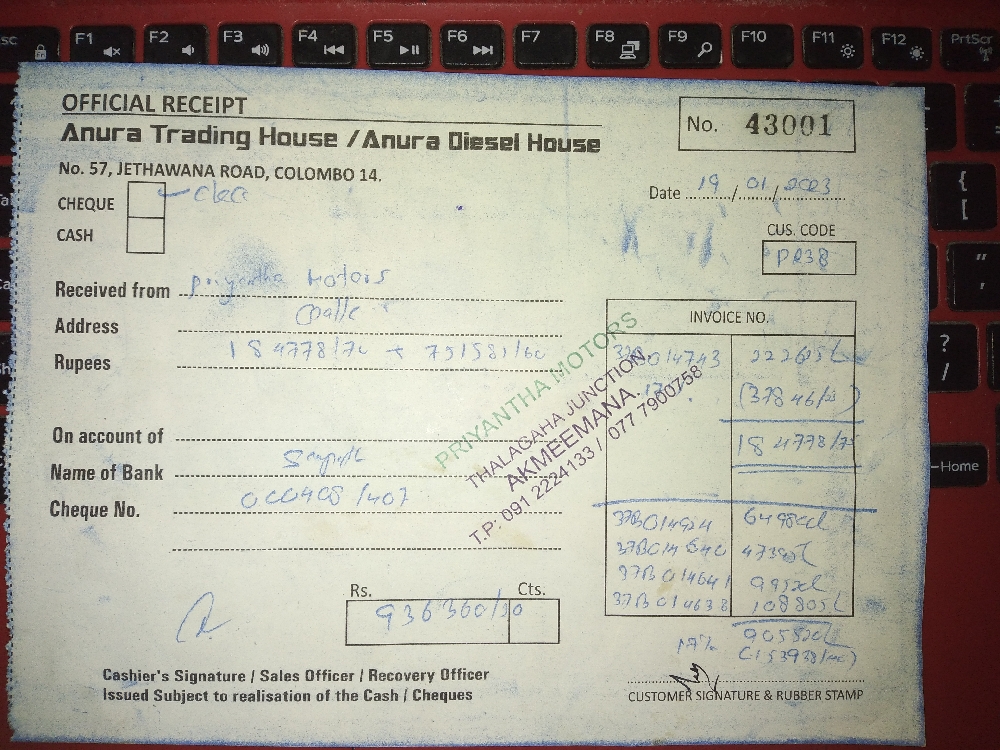 Esc F1 F2 F3 F4 F5 F6 F7 F8 F9 F10 F11 F12 PrtScr
OFFICIAL RECEIPT
No. 43001
Anura Trading House / Anura Diesel House
No. 57, JETHAWANA ROAD, COLOMBO 14.
Date 19/01/2023
CHEQUE
CASH
CUS. CODE
PR38
Received from Priyantha Motors
Address Galle
Rupees 184778/70 + 751581/60
INVOICE NO.
014743
(37846/
184778/7
PRIYANTHA MOTORS
THALAGAHA JUNCTION
AKMEEMANA.
T.P: 091 2224133 / 077 7900758
On account of
Name of Bank
Cheque No. 000408/407
37B014924
37B014640
37B014641
37B014638
Rs. Cts.
936360/30
17%
Cashier's Signature / Sales Officer / Recovery Officer
Issued Subject to realisation of the Cash / Cheques
CUSTOMER SIGNATURE & RUBBER STAMP
{
[
"
'
?
/
Home